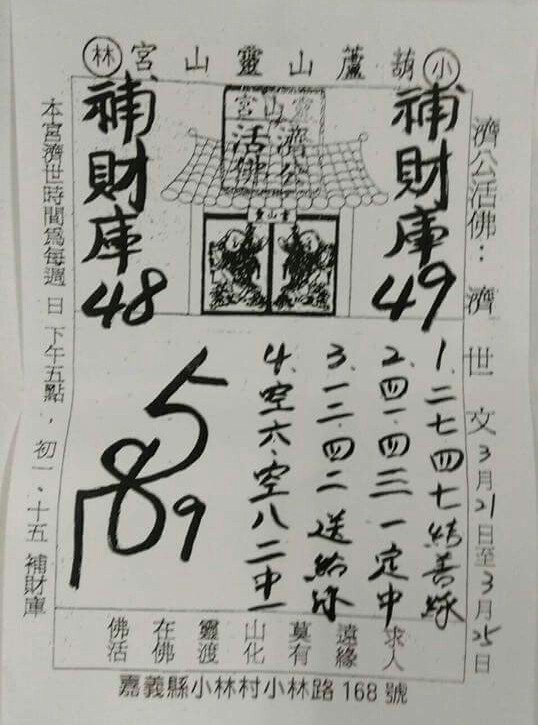 小葫蘆山靈山宮林
濟公活佛：濟世文3月21日至3月25日
補財庫49
靈山宮
濟公
活佛
補財庫48
本宮濟世時間為每週日下午五點，初一、十五補財庫
1、二七四七結善緣
2、四一·四三一定中
3、一二·四二送結緣
4、空六·空八二中一
5
789
佛在靈山莫遠求
活佛渡化有緣人
嘉義縣小林村小林路168號